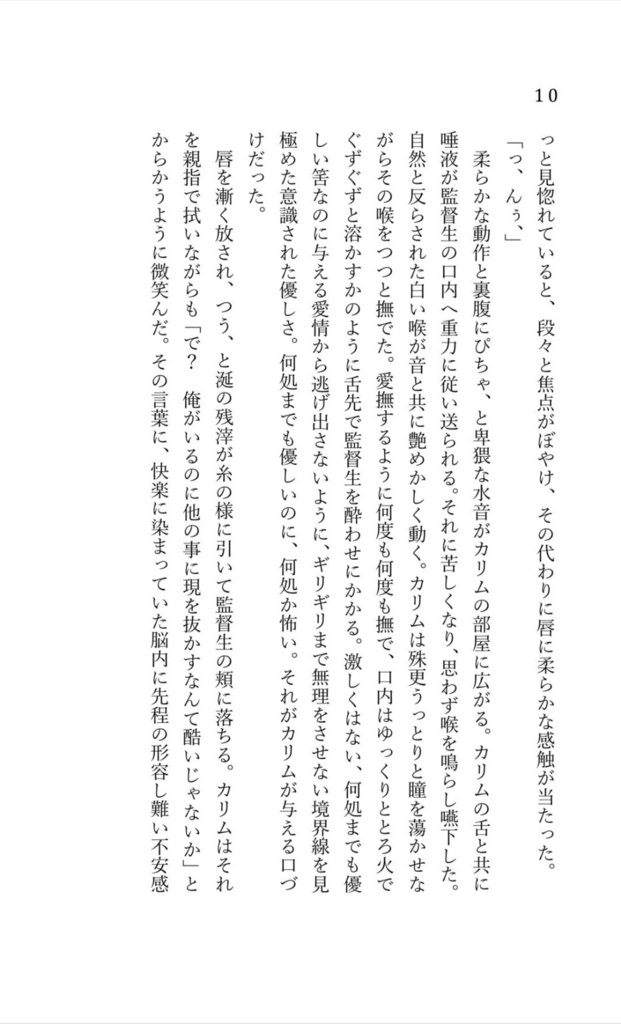 10
っと見惚れていると、段々と焦点がぼやけ、その代わりに唇に柔らかな感触が当たった。
「っ、んぅ、」
柔らかな動作と裏腹にぴちゃ、と卑猥な水音がカリムの部屋に広がる。カリムの舌と共に
唾液が監督生の口内へ重力に従い送られる。それに苦しくなり、思わず喉を鳴らし嚥下した。
自然と反らされた白い喉が音と共に艶めかしく動く。カリムは殊更うっとりと瞳を蕩かせな
がらその喉をつつと撫でた。愛撫するように何度も何度も撫で、口内はゆっくりととろ火で
ぐずぐずと溶かすかのように舌先で監督生を酔わせにかかる。激しくはない、何処までも優
しい筈なのに与える愛情から逃げ出さないように、ギリギリまで無理をさせない境界線を見
極めた意識された優しさ。何処までも優しいのに、何処か怖い。それがカリムが与える口づ
けだった。
唇を漸く放され、つう、と涎の残滓が糸の様に引いて監督生の頬に落ちる。カリムはそれ
を親指で拭いながらも「で？　俺がいるのに他の事に現を抜かすなんて酷いじゃないか」と
からかうように微笑んだ。その言葉に、快楽に染まっていた脳内に先程の形容し難い不安感